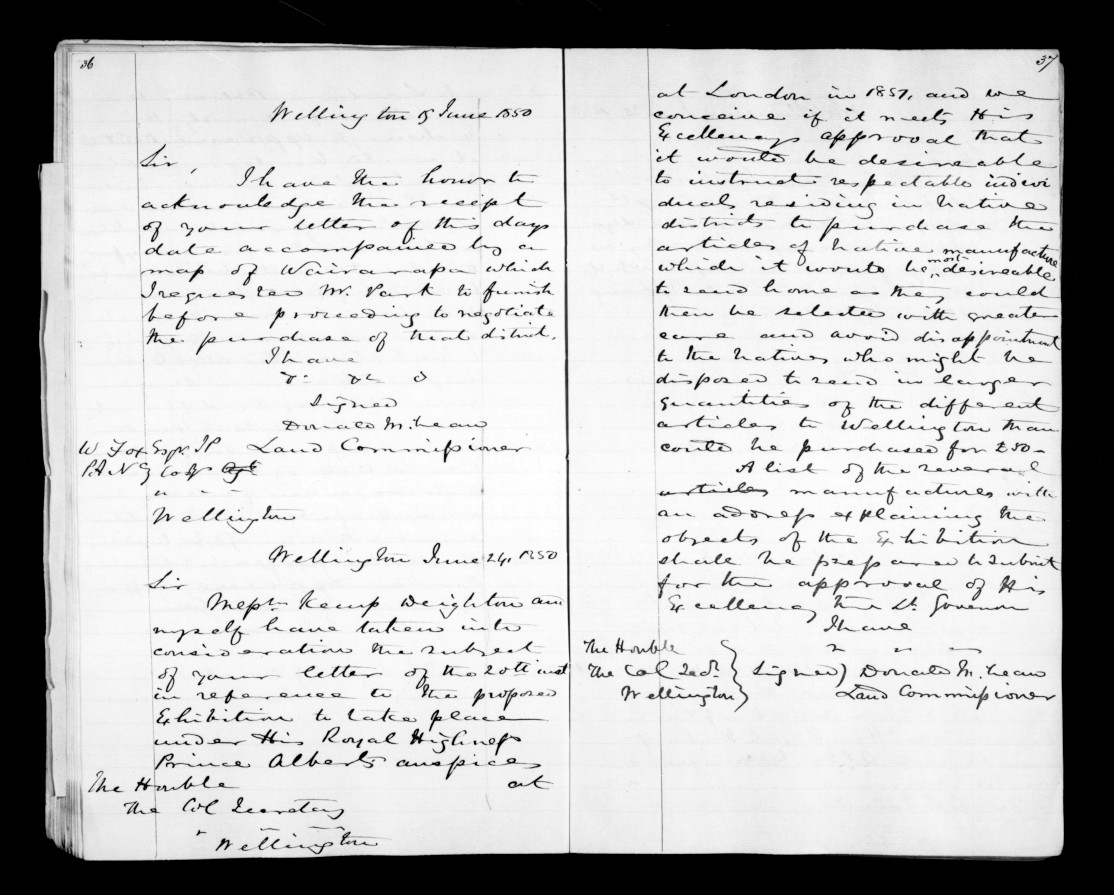 36
Wellington 8 June 1850
Sir,
I have the honor to
acknowledge the receipt
of your letter of this days
date accompanied by a
map of Wairarapa which
I requested Mr. Park to furnish
before proceeding to negotiate
the purchase of that district.
I have
Signed
Donald McLean
W Fox Esqr. JP Land Commissioner
P.A. N Z Coy
" - -
Wellington
Wellington June 24, 1850
Sir
Messrs Kemp Deighton and
myself have taken into
consideration the subject
of your letter of the 20th inst
in reference to the proposed
Exhibition to take place
under His Royal Highness
Prince Alberts auspices
The Honble at
The Col Secretary
Wellington
37
at London in 1851, and we
conceive if it meets His
Excellencys approval that
it would be desireable
to instruct respectable indivi
duals residing in Native
districts to purchase the
articles of Native manufacture
which it would be most desireable
to send home as they could
then be selected with greater
care and avoid disappointment
to the Natives who might be
disposed to send in larger
quantities of the different
articles to Wellington than
could be purchased for £50-
A list of the several
articles manufactures with
an address explaining the
objects of the Exhibition
shall be prepared to submit
for the approval of His
Excellency the Lt. Govenor
I have
" " -
The Honble
The Col Secy. } Signed) Donald McLean
Wellington } Land Commissioner